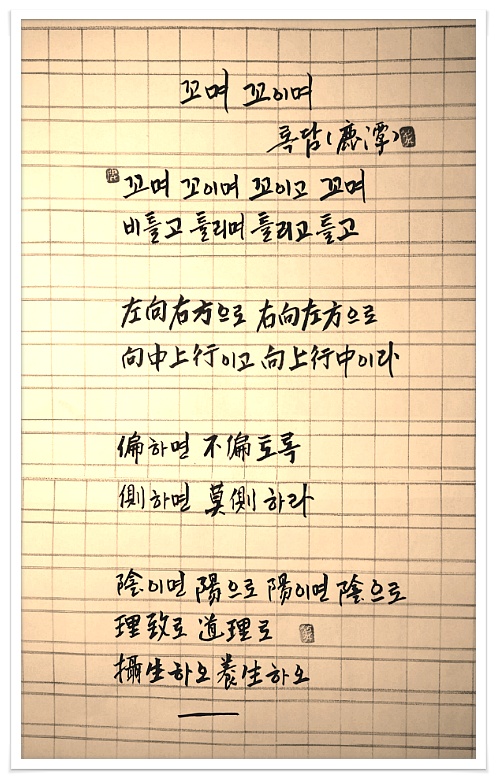 꼬며 꼬이며
록담(鹿潭)
꼬며 꼬이며 꼬이고 꼬며
비틀고 틀리며 틀리고 틀고
左向右方으로 右向左方으로
向中上行이고 向上行中이라
偏하면 不偏토록
側하면 莫側하라
陰이면 陽으로 陽이면 陰으로
理致로 道理로
攝生하오 養生하오